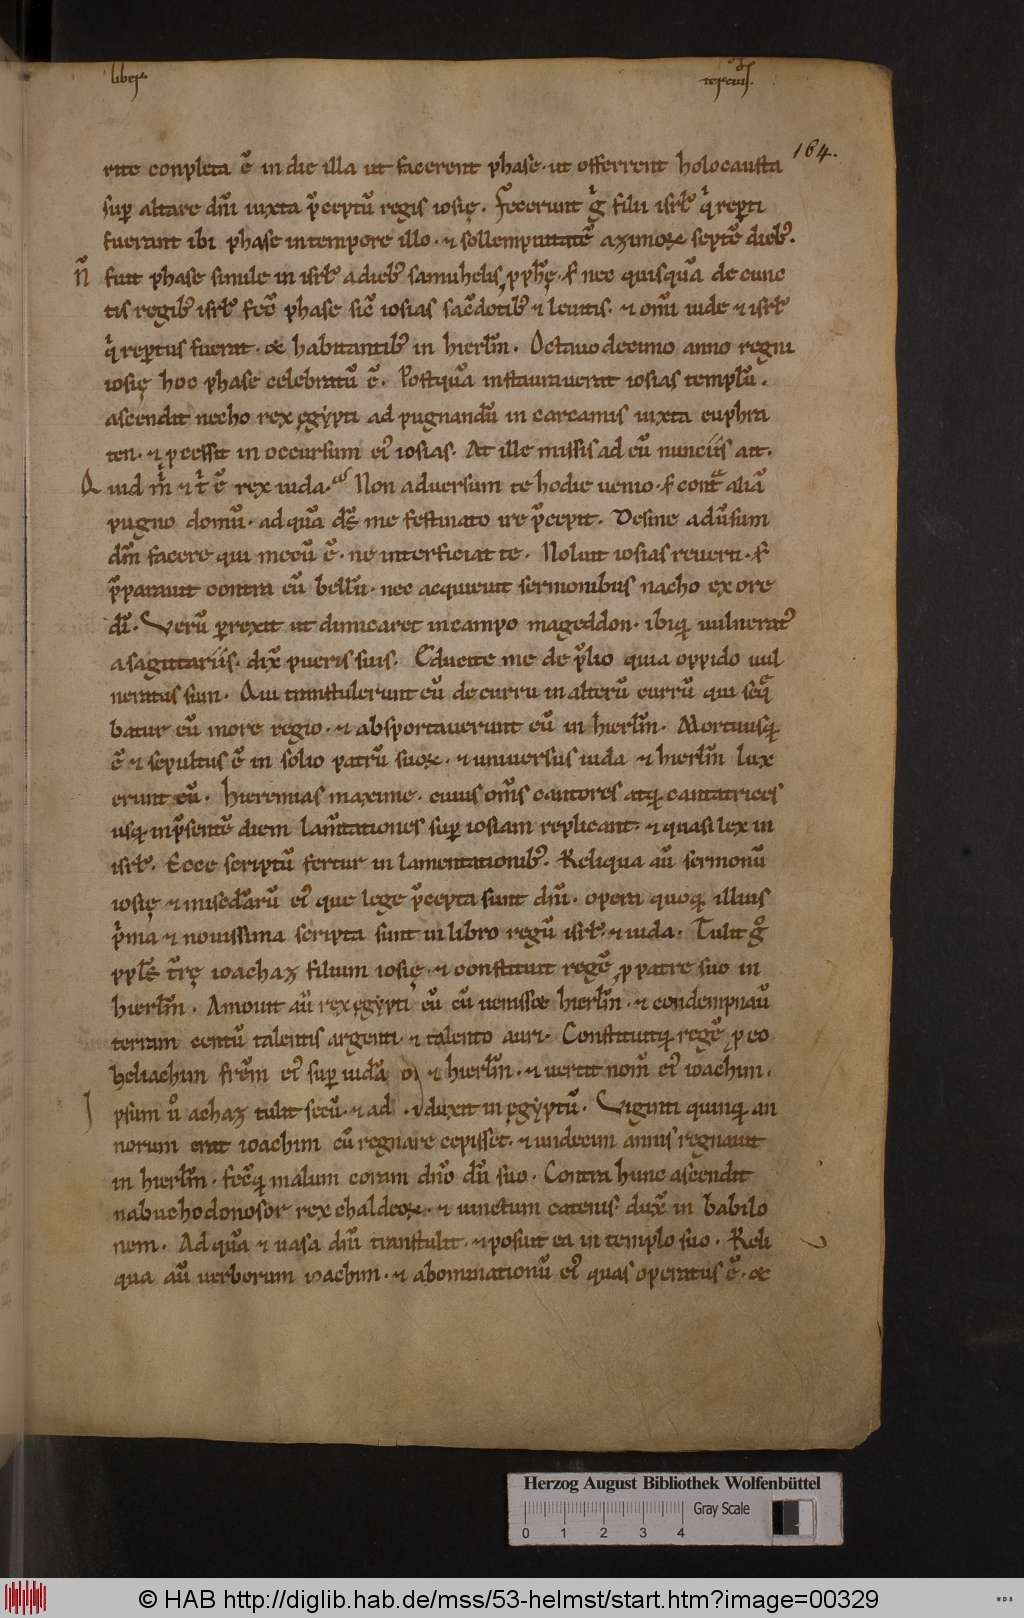 liber
tercius.
164.
rite conpleta ē in die illa ut facerent phase. ut offerrent holocausta
sup altare dn̄i iuxta p̄ceptū regis iosię. Fecerunt g̊ filii isrl̄ q̇ repti
fuerant ibi phase in tempore illo. ⁊ sollempnitatē azimoꝝ septē dieb;.
N̄ fuit phase simile in isrl̄ a dieb; samuhelis, ꝓph̄ę. s; nec quisquā de cunc
tis regib; isrl̄ fec̄ phase sic̄ iosias sac̄dotib; ⁊ leuitis. ⁊ om̄i iude ⁊ isrl̄
q̇ reptus fuerat. & habitantib; in hierlm̄. Octauo decimo anno regni
iosię hoc phase celebratū ē. Postquā instaurauerat iosias templū.
ascendit necho rex ęgẏpti ad pugnandū in carcamis iuxta euphra
ten. ⁊ ꝓcessit in occursum ei; iosias. At ille missis ad eū nunciis ait.
Quid m̊ ⁊ t̊ ē rex iuda. Non aduersum te hodie uenio. s; cont̄ aliā
pugno domū. ad quā ds̄ me festinato ire p̄cepit. Desine adūsum
dm̄ facere qui mecū ē. ne interficiat te. Noluit iosias reuerti. s;
p̄parauit contra eū bellū. nec acquieuit sermonibus nacho ex ore
dī. Verū perrexit ut dimicaret in campo mageddon. ibiq; uulnerat;
a sagittariis. dix̄ pueris suis. Educite me de p̄lio quia oppido uul
neratus sum. Qui transtulerunt eū de curru in alterū currū qui seq̄
batur eū more regio. ⁊ absportauerunt eū in hierlm̄. Mortuusq;
ē ⁊ sepultus ē in solio patrū suoꝝ. ⁊ uniuersus iuda ⁊ hierlm̄ lux
erunt eū. hieremias maxime. cuius om̄s cantores atq; cantatrices
usq; in p̄sentē diem lam̄tationes sup iosiam replicant. ⁊ quasi lex in
isrl̄. Ecce scriptū fertur in lamentationib;. Reliqua aū sermonū
iosię ⁊ mised̄arū ei; que lege p̄cepta sunt dn̄i. opera quoq; illius
p̄ma ⁊ nouissima scripta sunt in libro regū isrl̄. ⁊ iuda. Tulit g̊
ppl̄s t̄rę ioachaz filium iosię. ⁊ constituit regē ꝓ patre suo in
hierlm̄. Amouit aū rex ęgẏpti eū cū uenisset hierlm̄. ⁊ condempnaū
terram centū talentis argenti. ⁊ talento auri. Constituitq; regē ꝓ eo
heliachim frēm ei; sup iudā ⁊ hierlm̄. ⁊ uertit nom̄ ei; ioachim.
Ipsum ů achaz tulit secū. ⁊ ad duxit in ęgẏptū. Viginti quinq; an
norum erat ioachim cū regnare cepisset. ⁊ undecim annis regnauit
in hierlm̄. fec̄q; malum coram dn̄o dō suo. Contra hunc ascendit
nabuchodonosor rex chaldeoꝝ. ⁊ uinctum catenis. dux̄ in babilo
nem. Ad quā ⁊ uasa dn̄i transtulit. ⁊ posuit ea in templo suo. Reli
qua aū uerborum ioachim. ⁊ abominationū ei; quas operatus ē. &
Herzog August Bibliothek Wolfenbüttel
Gray Scale
0 1 2 3 4
© HAB http://diglib.hab.de/mss/53-helmst/start.htm?image=00329